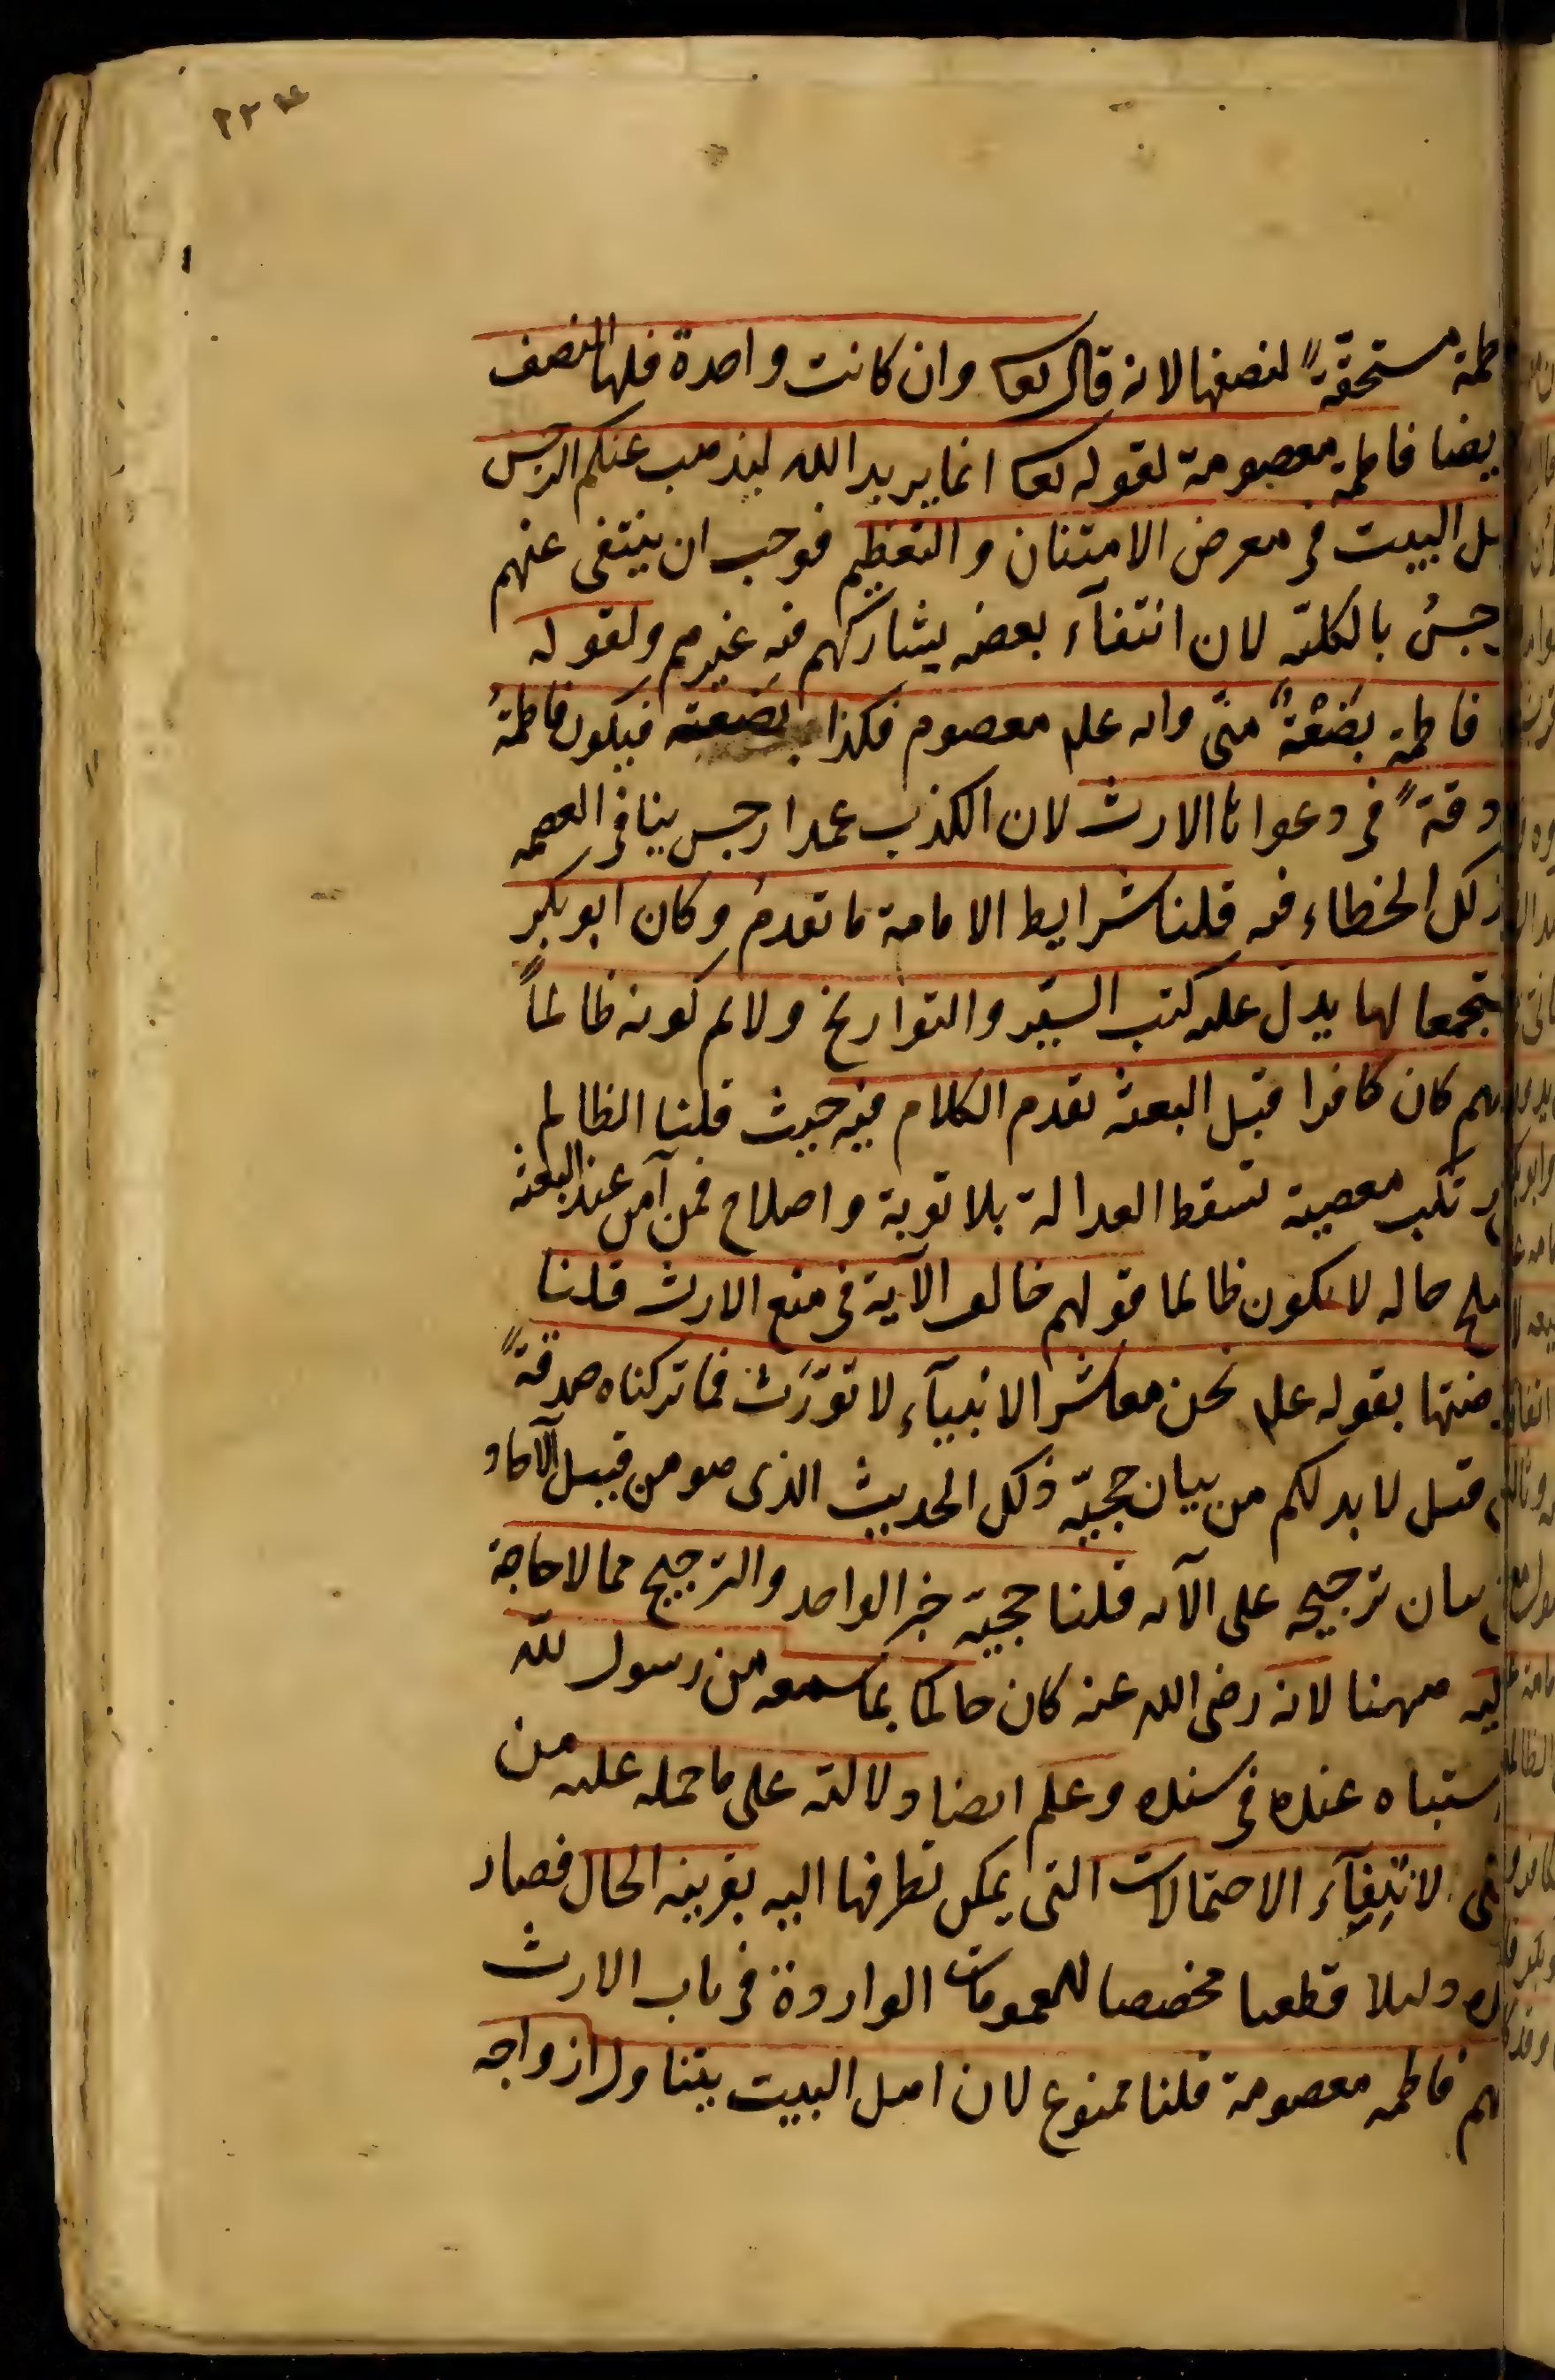 طمة مستحقّةً لنصفها لانه قال تعا وان كانت واحدة فلها النصف
يضا فاطمة معصومة لقوله تعا انما يريد الله ليذهب عنكم الرجس
هل البيت فى معرض الامتنان والتعظيم فوجب ان ينتفى عنهم
رجسُ بالكلية لان انتفآء بعضه يشاركهم فيه غيرهم ولقوله
فاطمة بَضْعَةٌ منّى وانه علم معصوم فكذا بضعته فيكون فاطمةُ
دقةً فى دعواها الارث لان الكذب عمدا رجس ينافى العصمه
ذلك الخطاء فيه قلنا شرايط الامامة ما تقدمُ وكان ابو بكر
تجمعا لها يدل عليه كتب السيَر والتوَاريخ ولانم كونه ظالماً
لهم كان كافرا قبل البعثة تقدم الكلام فيه حيث قلنا الظالم
رتكب معصية تسقط العدالة بلا توبة واصلاح فمن آمن عند البعثة
صلح حاله لا يكون ظالما قولهم خالف الآية فى منع الارث قلنا
رضتها بقوله علم نحن معاشر الانبيآء لا نورَث فما تركناه صدقةً
قيل لا بد لكم من بيان حجيّة ذلك الحديث الذى هو من قبيل الآحاد
بيان ترجيحه على الآية قلنا حجية خبر الواحد والترجيح مما لا حاجة
ليه ههنا لانه رضى الله عنه كان حاكما بما سمعه من رسول لله
ستباه عنده فى سنده وعلم ايضا دلالته على ما حمله عليه من
نى لانتِفآء الاحتمالات التى يمكن تطرقها اليه بقرينه الحال فصار
ده دليلا قطعيا مخصصا للعمومات الواردة فى باب الارث
لهم فاطمه معصومة قلنا ممنوع لان اهل البيت يتناول ازواجه